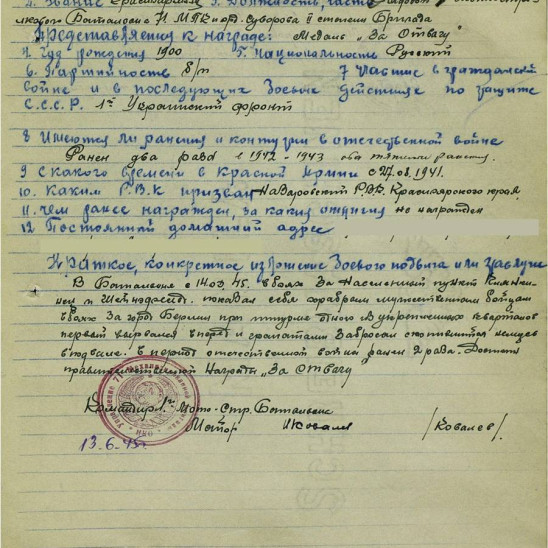 2. Звание Красноармеец 3. Должность, часть
Баталиона И МПК и орд. Суворова II степени Бригада
Представляется к награде: Медаль "За Отвагу"
4. Год рождения 1900 5. Национальность Русский
6. Партийность б/п 7 Участие в гражданской
войне и в последующих боевых действиях по защите
С.С.С.Р. 1й Украинский фронт
8 Имеются ли ранения и контузии в отечественной войне
Ранен два раза в 1942-1943 оба тяжелых ранения.
9 С какого времени в Красной Армии с 27.08.1941.
10. каким Р.В.К призван Назаровский РВК Красноярского края
11. чем ранее награжден, за какия отличия не награжден
12 Постоянный домашний адрес
Краткое, конкретное изложение боевого подвига или заслуги
В Баталионе с 1945. в боях за населенный пункт
показал себя храбрым мужественным бойцом
в боях за город Берлин при штурме одного из укрепленных кварталов
первый ворвался вперед и гранатами забросал скопившихся немцев
в подвале. в период отечественной войны ранен 2 раза. Достоин
правительственной Награды "За Отвагу"
Командир 1го Мото-Стр. Баталиона
Майор Ковалев /Ковалев/
13.6.45г.